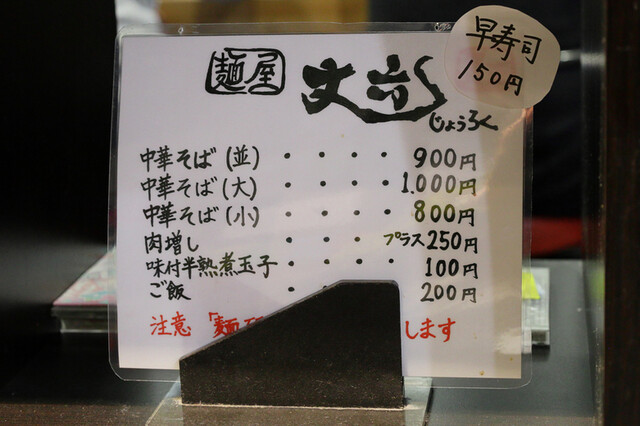 早寿司
150円
麺屋 丈六
じょうろく
中華そば(並)・・・・900円
中華そば(大)・・・・1,000円
中華そば(小)・・・・800円
肉増し・・・・プラス250円
味付半熟煮玉子・・・・100円
ご飯・・・・200円
注意「麺 します